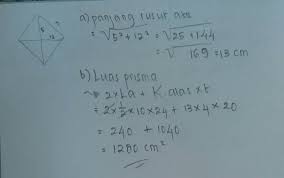 5
12
a) panjang rusuk alas
= √5² + 12² = √25 + 144
= √ 169 = 13 cm
b) Luas prisma
= 2 × La + K. alas × t
= 2 × ½ × 10 × 24 + 13 × 4 × 20
= 240 + 1040
= 1280 cm²